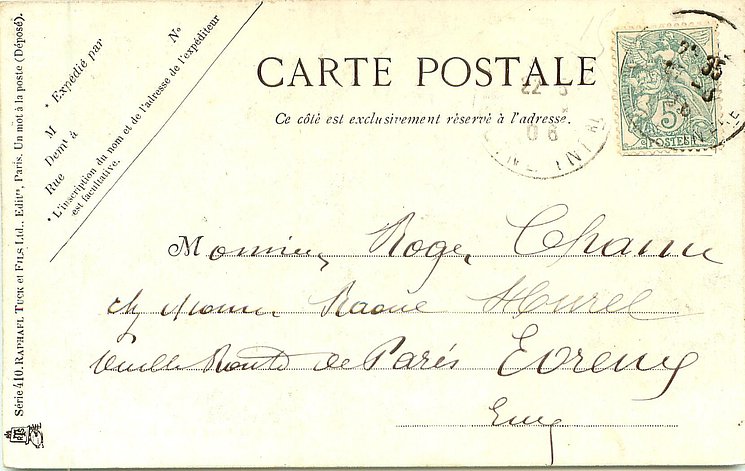 CARTE POSTALE
Ce côté est exclusivement réservé à l'adresse.
* Expédié par
M N°
Demt à
Rue
* L'inscription du nom et de l'adresse de l'expéditeur
est facultative.
Série 410. RAPHAEL TUCK et FILS Ltd., Editrs, Paris. Un mot à la poste (Déposé).
5
POSTES
22
06
Monsieur Roger
chez Monsieur Raoul Hurel
Vieille Route de Paris Evreux
Eure